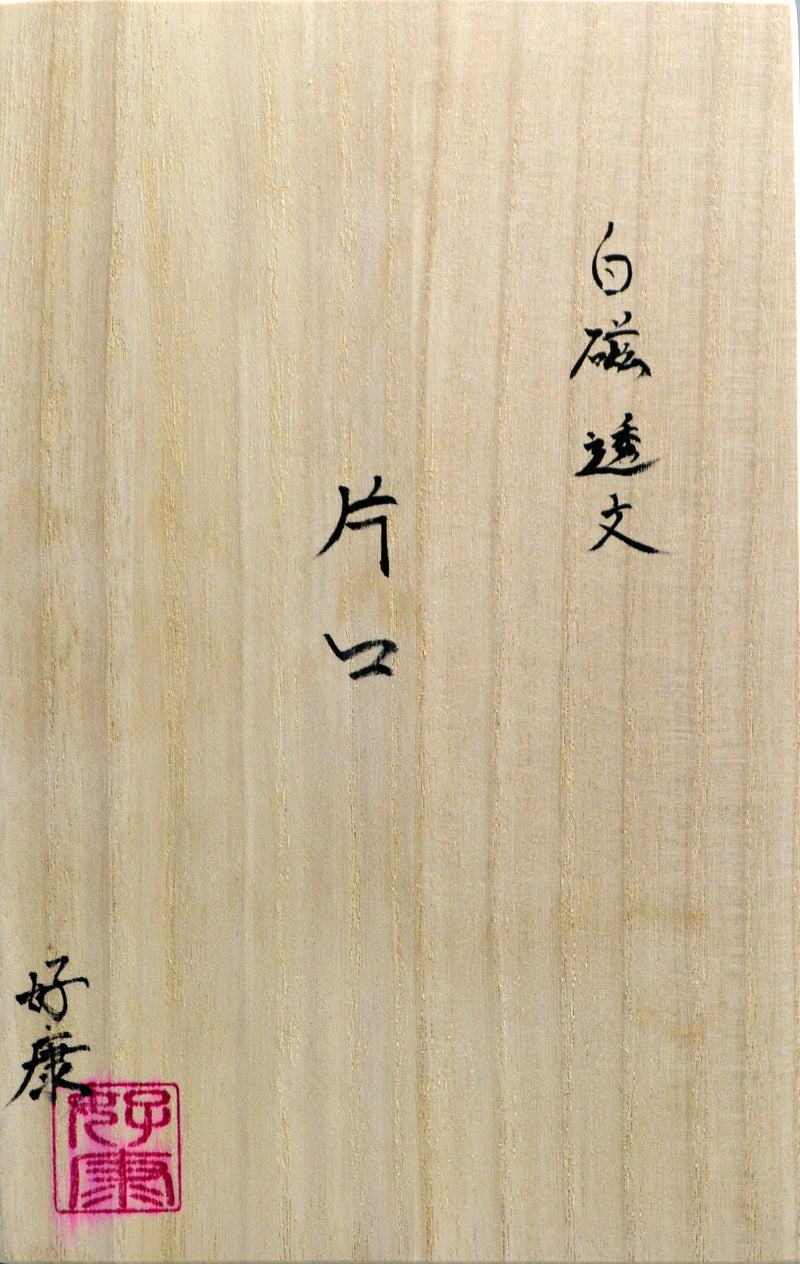 白磁透文
片口
好康
好康